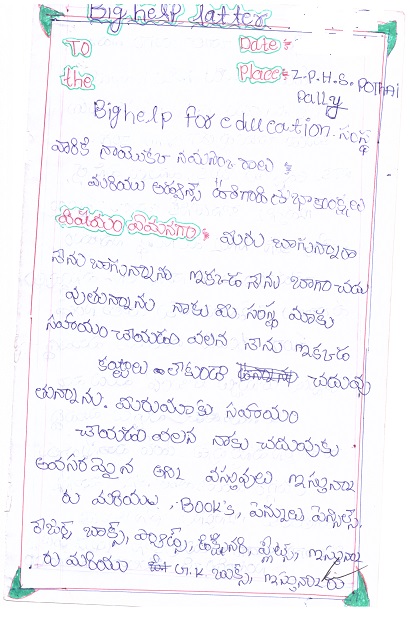 Big help latter
TO Date:
the Place: Z.P.H.S. POTHAI
Pally
Big help for education. సంస్థ
వారికి నాయొక్క నమస్కారములు
మరియు శుభాకాంక్షలు
విషయం ఏమనగా: మీరు బాగున్నారా
నేను బాగున్నాను ఇక్కడ నేను బాగా చదు
వుతున్నాను నాకు మీ సంస్థ మాకు
సహాయం చేయడం వలన నేను ఇక్కడ
కష్టాలు లేకుండా చదువు
తున్నాను. మీరు మాకు సహాయం
చేయడం వలన నాకు చదువుకు
అవసరమైన అని వస్తువులు ఇస్తున్నా
రు మరియు, Book's, పెన్నులు పెన్సిల్స్,
బాక్స్, ప్లేట్స్, ఇస్తున్నా
రు మరియు G.K బుక్స్, ఇస్తున్నారు